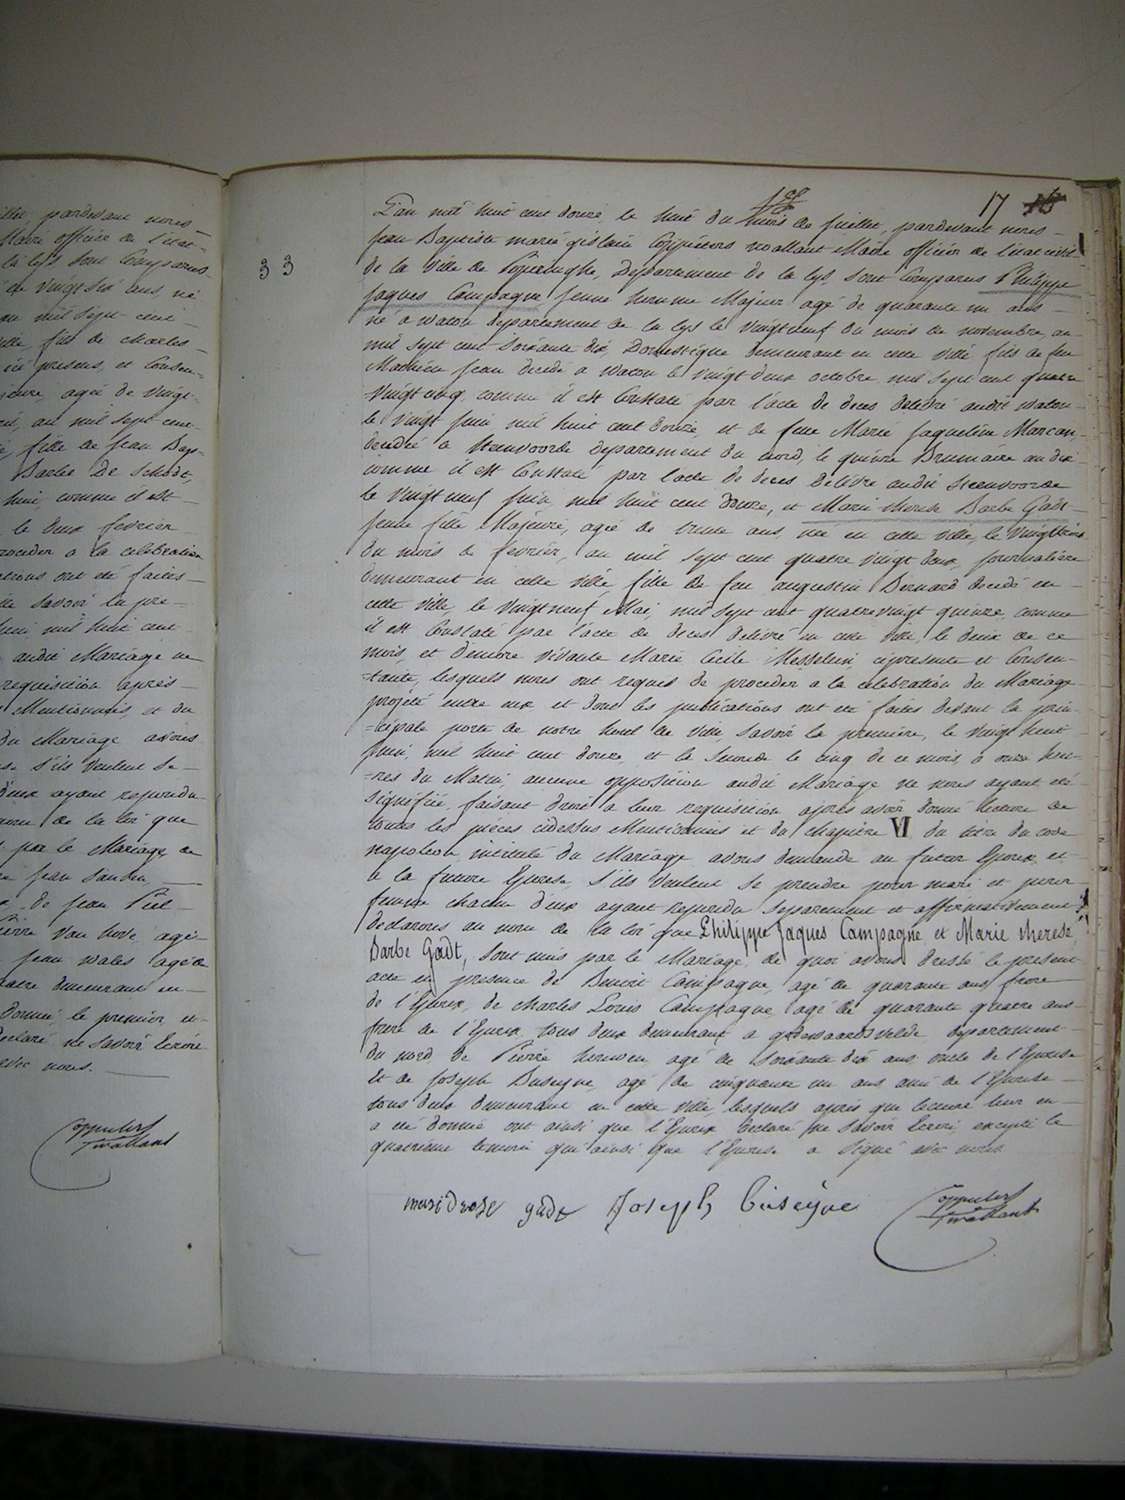 illet, pardevant nous
Maire officier de l'état
la lys sont comparus
de vingt six ans, né
au mil sept cent
ville fils de charles
ici présens, et Consen=
jeure, agée de vingt
au mil sept cent
fille de jean Bap
Barbe de Schodt,
huit, comme il est
le deux fevrier
proceder a la celebration
ations ont été faites
savoir la pre
juin mil huit cent
audit Mariage ne
requisition après
Mentionnés et du
du Mariage avons
s'ils veulent se
d'eux ayant repondu
nom de la loi que
par le Mariage, de
jean
de jean
Pierre Van hove agé
jean wales agé de
demeurant en
Donné, le premier et
declaré ne savoir Ecrire
avec nous.
Coppieters
Twallant
17 16
33
L'an mil huit cent douze le huit du mois de juillet, pardevant nous
Jean Baptiste marie gislain Coppieters wallant Maire officier de l'état civil
de la ville de Poperinghe, Departement de la lys, sont Comparus Philippe
Jaques Campagne jeune homme Majeur agé de quarante un ans
né à watou departement de la lys le vingt neuf du mois de novembre, an
mil sept cent soixante dix, Domestique demeurant en cette ville fils de feu
Mathieu jean decedé a watou le vingt deux octobre mil sept cent quatre
vingt cinq, comme il est Constaté par l'acte de deces delivré audit watou
le vingt juin mil huit cent douze, et de feue Marie Jaqueline Marcan,
decedée a steenvoorde departement du nord, le quinze Brumaire an dix
comme il est Constaté par l'acte de deces delivré audit steenvoorde
le vingt neuf juin, mil huit cent Douze, et Marie therese Barbe Gadt
jeune fille Majeure, agée de trente ans, née en cette ville, le vingt trois
du mois de fevrier, an mil sept cent quatre vingt deux, journaliere
demeurant en cette ville, fille de feu augustin Bernard decedé en
cette ville, le vingt neuf Mai, mil sept cent quatre vingt quinze, comme
il est Constaté par l'acte de deces delivré en cette ville le deux de ce
mois, et d'encore vivante Marie Cecile Messelein, ci presente et Consen=
=tante, lesquels nous ont requis de proceder a la celebration du Mariage
projété entre eux et dont les publications ont été faites devant la prin=
=cipale porte de notre hotel de ville, savoir la premiere, le vingt huit
juin, mil huit cent douze, et la seconde le cinq de ce mois, a onze heu=
=res du Matin, aucune opposition audit Mariage ne nous ayant été
signifiée, faisant droit a leur requisition après avoir donné lecture de
toutes les pièces cidessus Mentionnées et du chapitre VI du titre du code
napoleon, intitulé du Mariage, avons demandé au futur Epoux et
a la future Epouse, s'ils veulent se prendre pour mari et pour
femme chacun d'eux ayant repondu separement et affirmativement
declarons au nom de la loi que Philippe Jaques Campagne et Marie therese
Barbe Gadt, sont unis par le Mariage, de quoi avons dressé le present
acte en presence de Benoit Campagne agé de quarante ans frere
de l'Epoux, de charles Louis Campagne agé de quarante quatre ans
frere de l'Epoux tous deux demeurant a godewaardsvelde departement
du nord de Pierre agé de soixante dix ans oncle de l'Epouse
Et de Joseph Buseyne, agé de cinquante un ans ami de l'Epouse
tous deux demeurant en cette ville, lesquels après que lecture leur en
a été donnée ont ainsi que l'Epoux declaré ne savoir Ecrire, excepté le
quatrieme temoin qui ainsi que l'Epouse a signé avec nous
Joseph buseyne
Coppieters
Twallant